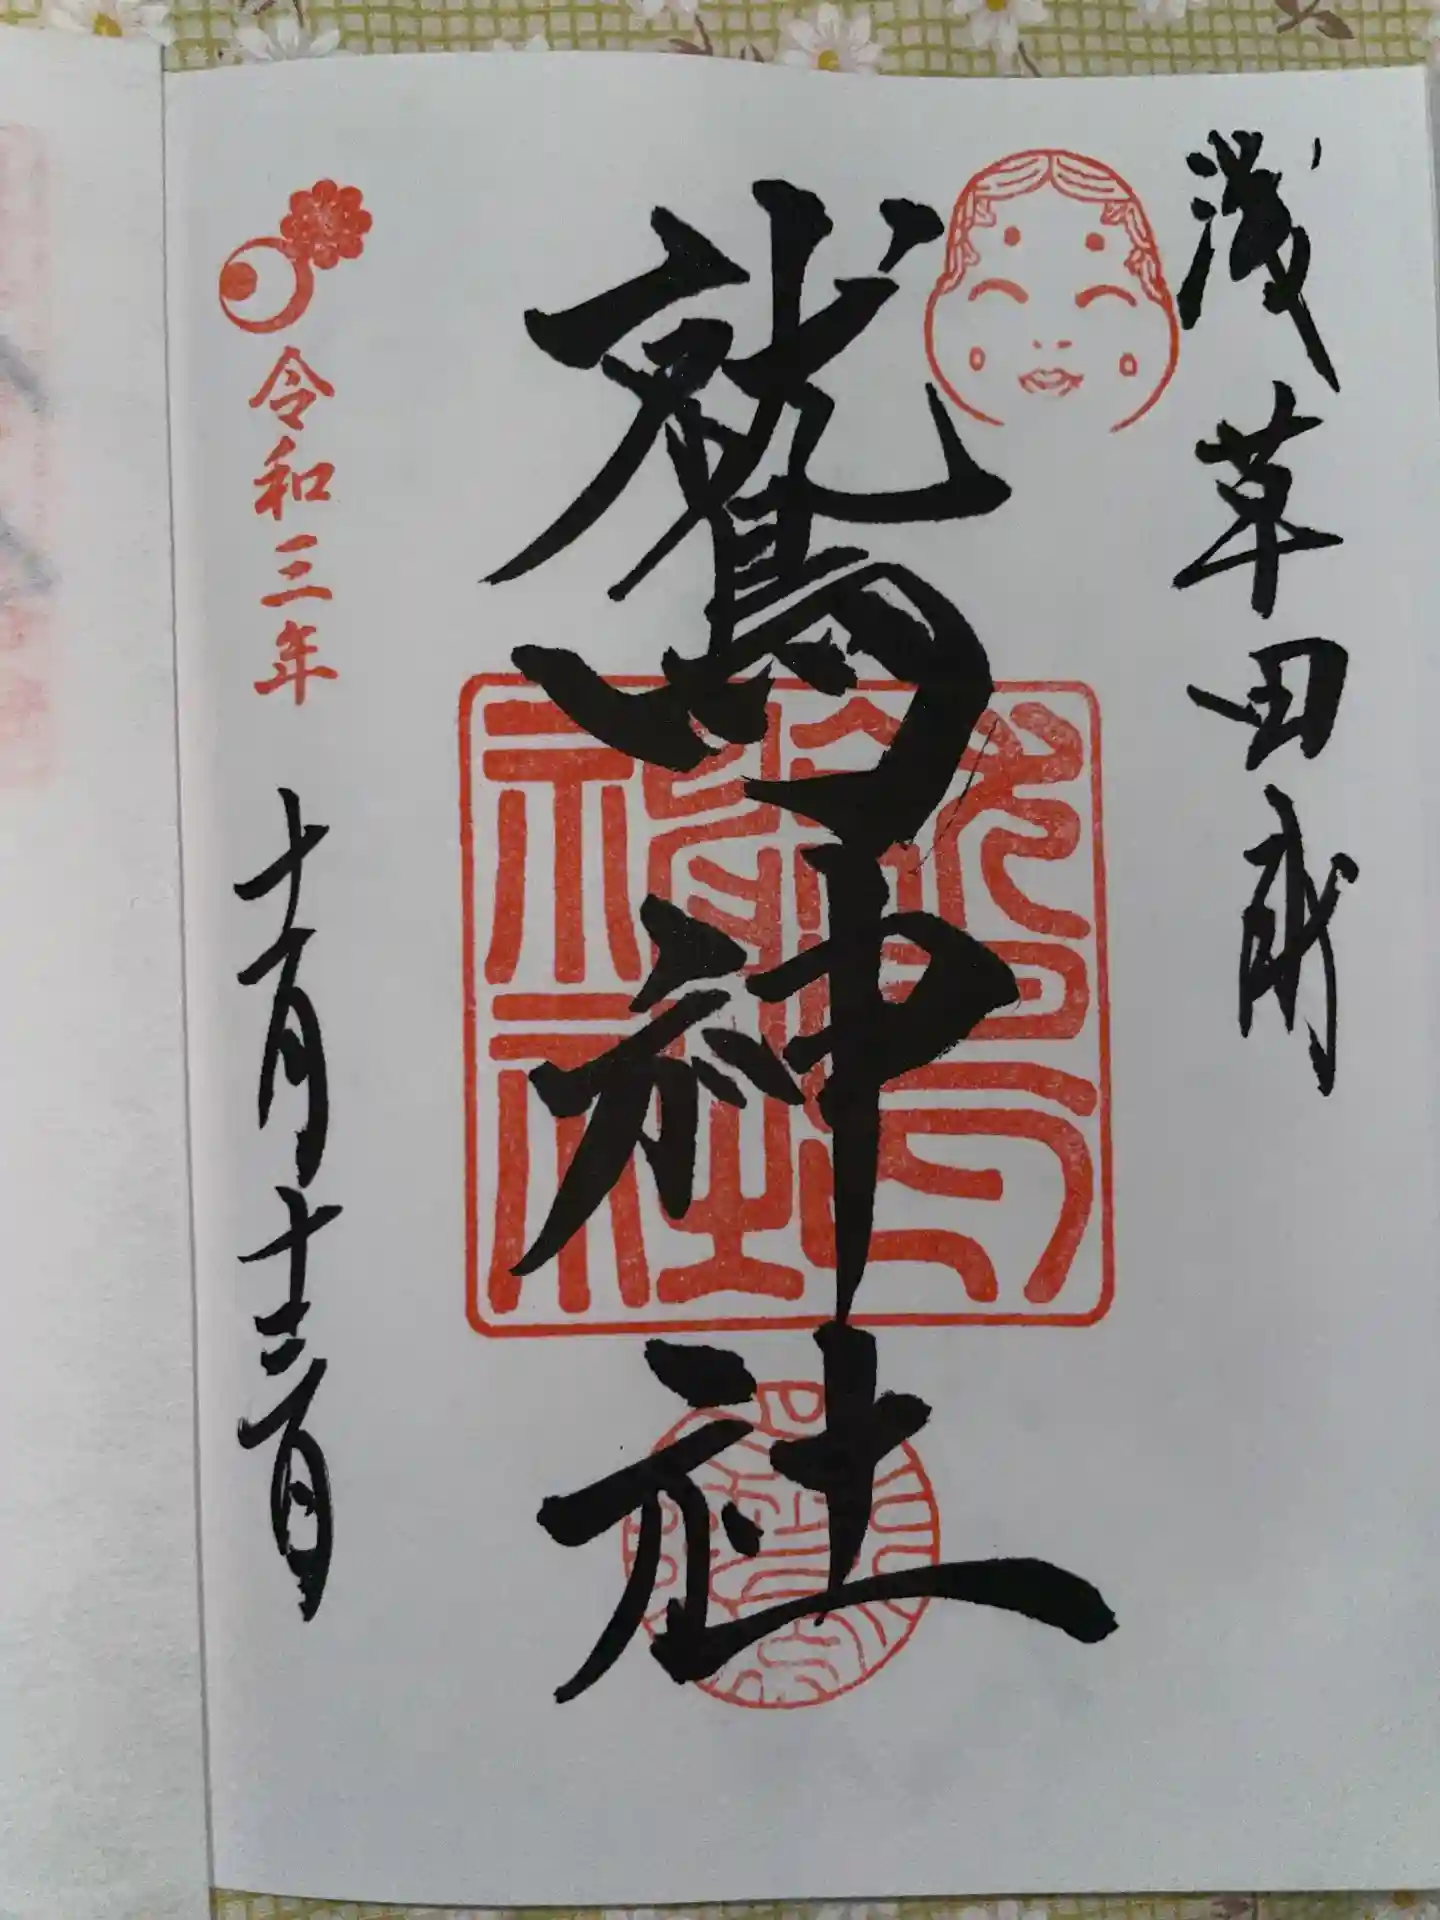 浅草田甫
鷲神社
鷲神社
令和三年十一月十二日